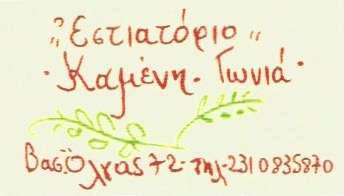 "Εστιατόριο"
· Καμένη · Γωνιά ·
Βασ. Όλγας 72 · τηλ · 2310835870